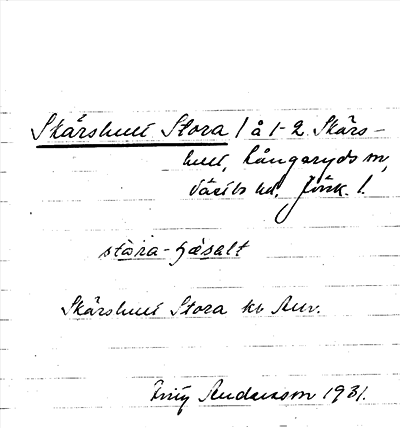 Skärshult Stora 1 å 1-2 Skärs-
hult, Långaryds sn,
Västbo hd. Jönk. l.
stòra-hæsalt
Skärshult Stora kb Anv.
Fritz Andersson 1931.